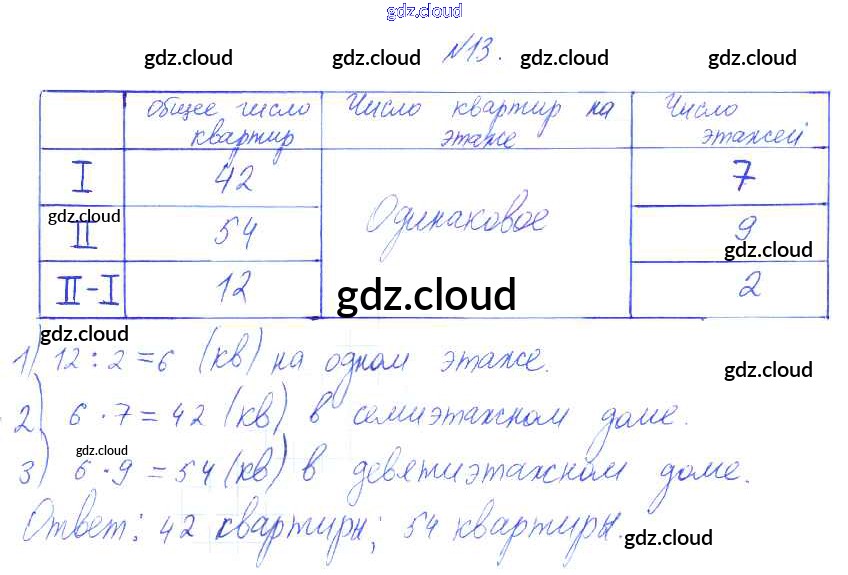 gdz.cloud
№13.
gdz.cloud gdz.cloud gdz.cloud gdz.cloud
общее число квартир Число квартир на этаже Число этажей
I 42 7
gdz.cloud
Одинаковое
II 54 9
gdz.cloud
II-I 12 2
gdz.cloud
gdz.cloud
1) 12 : 2 = 6 (кв) на одном этаже.
gdz.cloud
2) 6 · 7 = 42 (кв) в семиэтажном доме.
gdz.cloud
3) 6 · 9 = 54 (кв) в девятиэтажном доме.
Ответ: 42 квартиры; 54 квартиры.
gdz.cloud